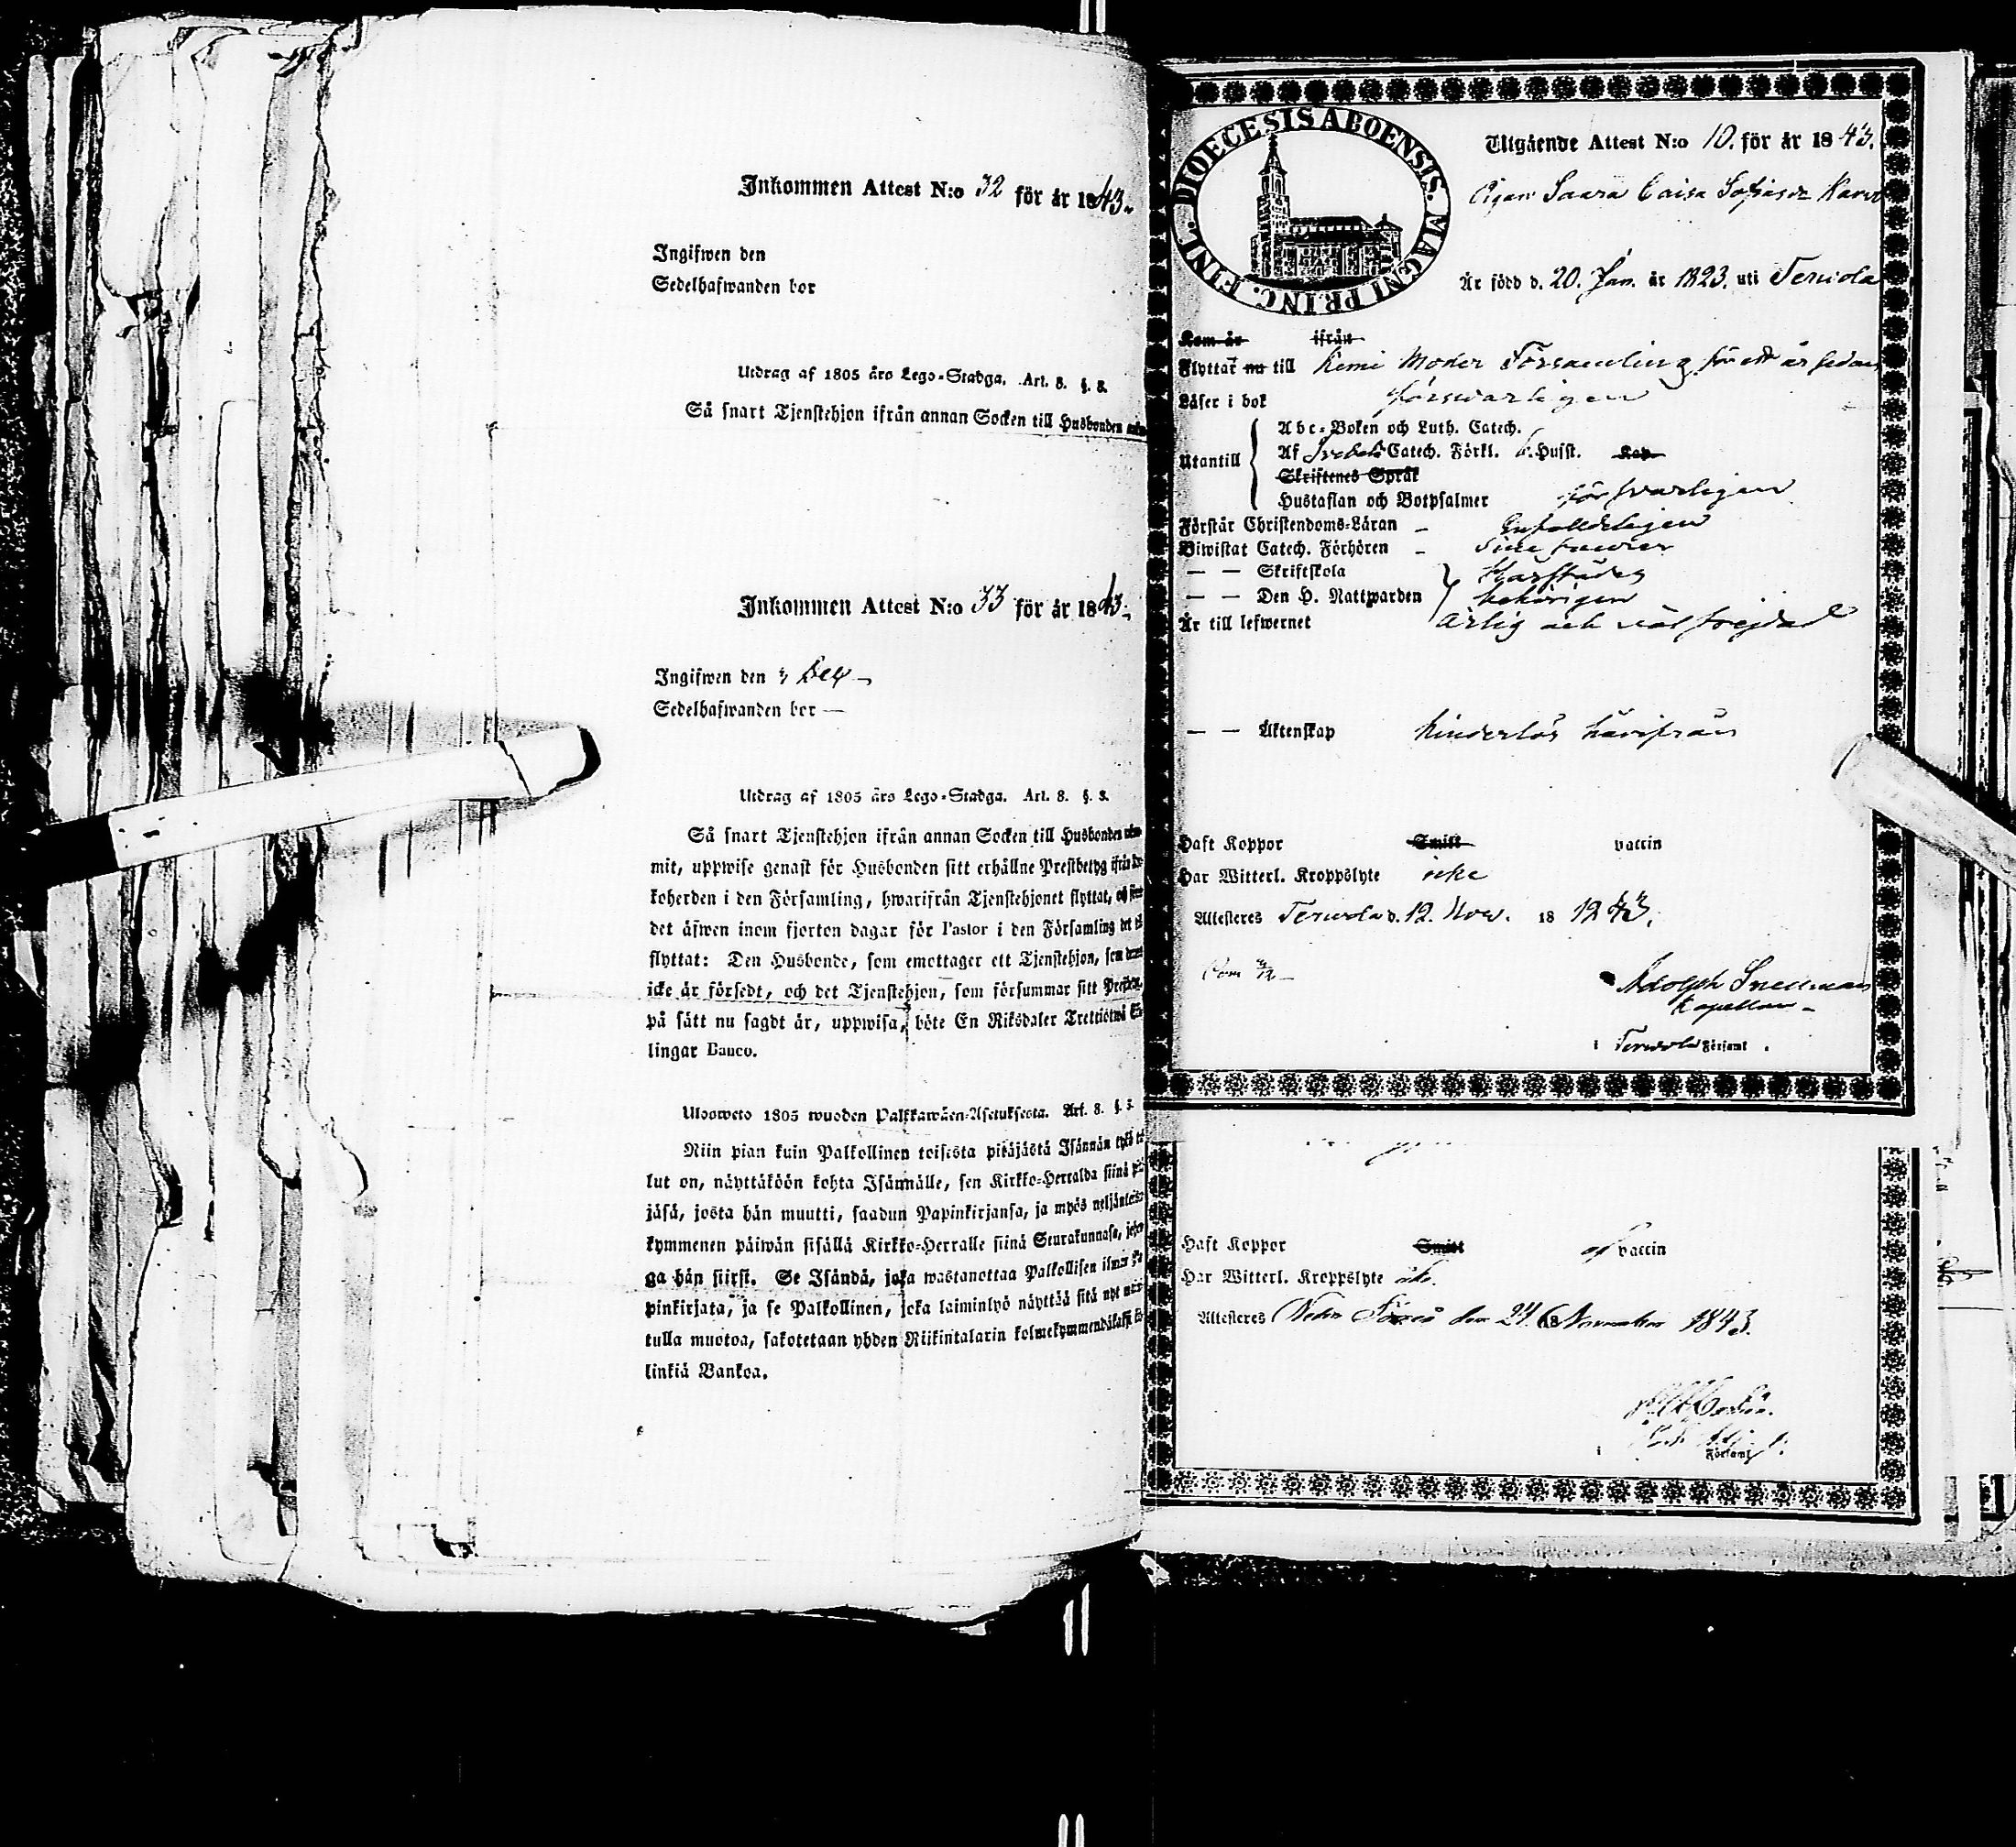 Inkommen Attest N:o 32 för år 1843.
Ingifwen den
Sedelhafwanden bor
Utdrag af 1805 års Lego-Stadga. Art. 8. §. 8.
Så snart Tjenstehjon ifrån annan Socken till Husbonden
Inkommen Attest N:o 33 för år 1843.
Ingifwen den
Sedelhafwanden bor —
Utdrag af 1805 års Lego-Stadga. Art. 8. §. 8.
Så snart Tjenstehjon ifrån annan Socken till Husbonden
mit, uppwise genast för Husbonden sitt erhållne Prestbetyg ifrån
koherden i den Församling, hwarifrån Tjenstehjonet flyttat, och
det äfwen inom fjorton dagar för Pastor i den Församling det
flyttat: Den Husbonde, som emottager ett Tjenstehjon, som
icke är försedt, och det Tjenstehjon, som försummar sitt
på sätt nu sagdt är, uppwisa, böte En Riksdaler Trettiotwå
lingar Banco.
Ulosweto 1805 wuoden Palkkawäen-Asetuksesta. Art. 8. §.
Niin pian kuin Palkollinen toisesta pitäjästä Isännän tykö
lut on, näyttäköön kohta Isännälle, sen Kirkko-Herralda siinä
jäsä, josta hän muutti, saadun Papinkirjansa, ja myös
kymmenen päiwän sisällä Kirkko-Herralle siinä Seurakunnasa,
ga hän siirsi. Se Isändä, joka wastanottaa Palkollisen ilman
pinkirjata, ja se Palkollinen, joka laiminlyö näyttää sitä nyt
tulla muotoa, sakotetaan yhden Riikintalarin
linkiä Bankoa.
FINL. DIOECESIS ABOENSIS. MAGNI PRINC.
Utgående Attest N:o 10. för år 1843.
Pigan Saara Caisa
Är född d. 20. Jan. år 1823. uti Terwola
Kom år ifrån
Flyttar nu till Kemi Moder Församling för ett år sedan
Läser i bok försvarligen
Abc-Boken och Luth. Catech.
Utantill Af Svebeli Catech. Förkl. Husst. Kap.
Skriftenes Språk
Hustaflan och Botpsalmer försvarligen
Förstår Christendoms-Läran – Enfaldeligen
Biwistat Catech. Förhören –
— — Skriftskola
— — Den H. Nattwarden behörigen
Är till lefwernet ärlig och väl frejdad
— — Äktenskap hinderlös härifrån
Haft Koppor Smitt vaccin
Har Witterl. Kroppslyte icke
Attesteres Terwola d. 12. Nov. 18 1843.
Adolph Snellman
Kapellan
i Terwola Församl.
Haft Koppor Smitt af vaccin
Har Witterl. Kroppslyte icke.
Attesteres Neder Torneå den 24. 18 November 1843.
i Församl.